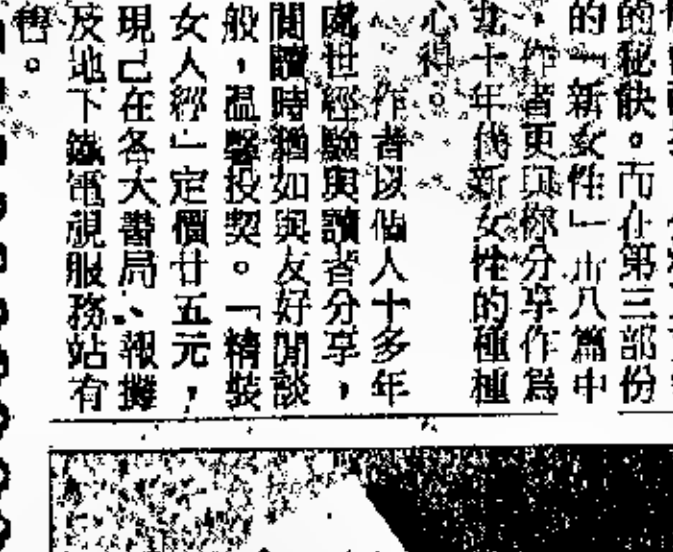 的秘訣。而在第三部份
的「新女性」卅八篇中
，作者更與你分享作為
九十年代新女性的種種
心得。
作者以個人十多年
處世經驗與讀者分享，
閱讀時猶如與友好閒談
般，溫馨投契。「精裝
女人經」定價廿五元，
現已在各大書局、報攤
及地下鐵電視服務站有
售。